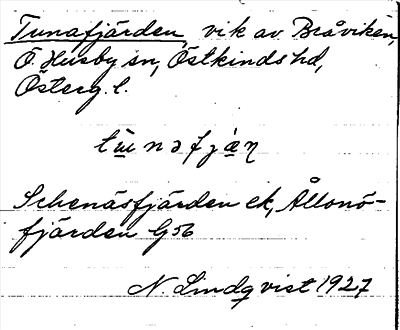 Tunafjärden vik av Bråviken,
Ö. Husby sn, Östkinds hd,
Österg. l.
tɯnəfjæ̀ɳ
Schenäsfjärden ek, Ållonö-
fjärden G56
N. Lindqvist 1927